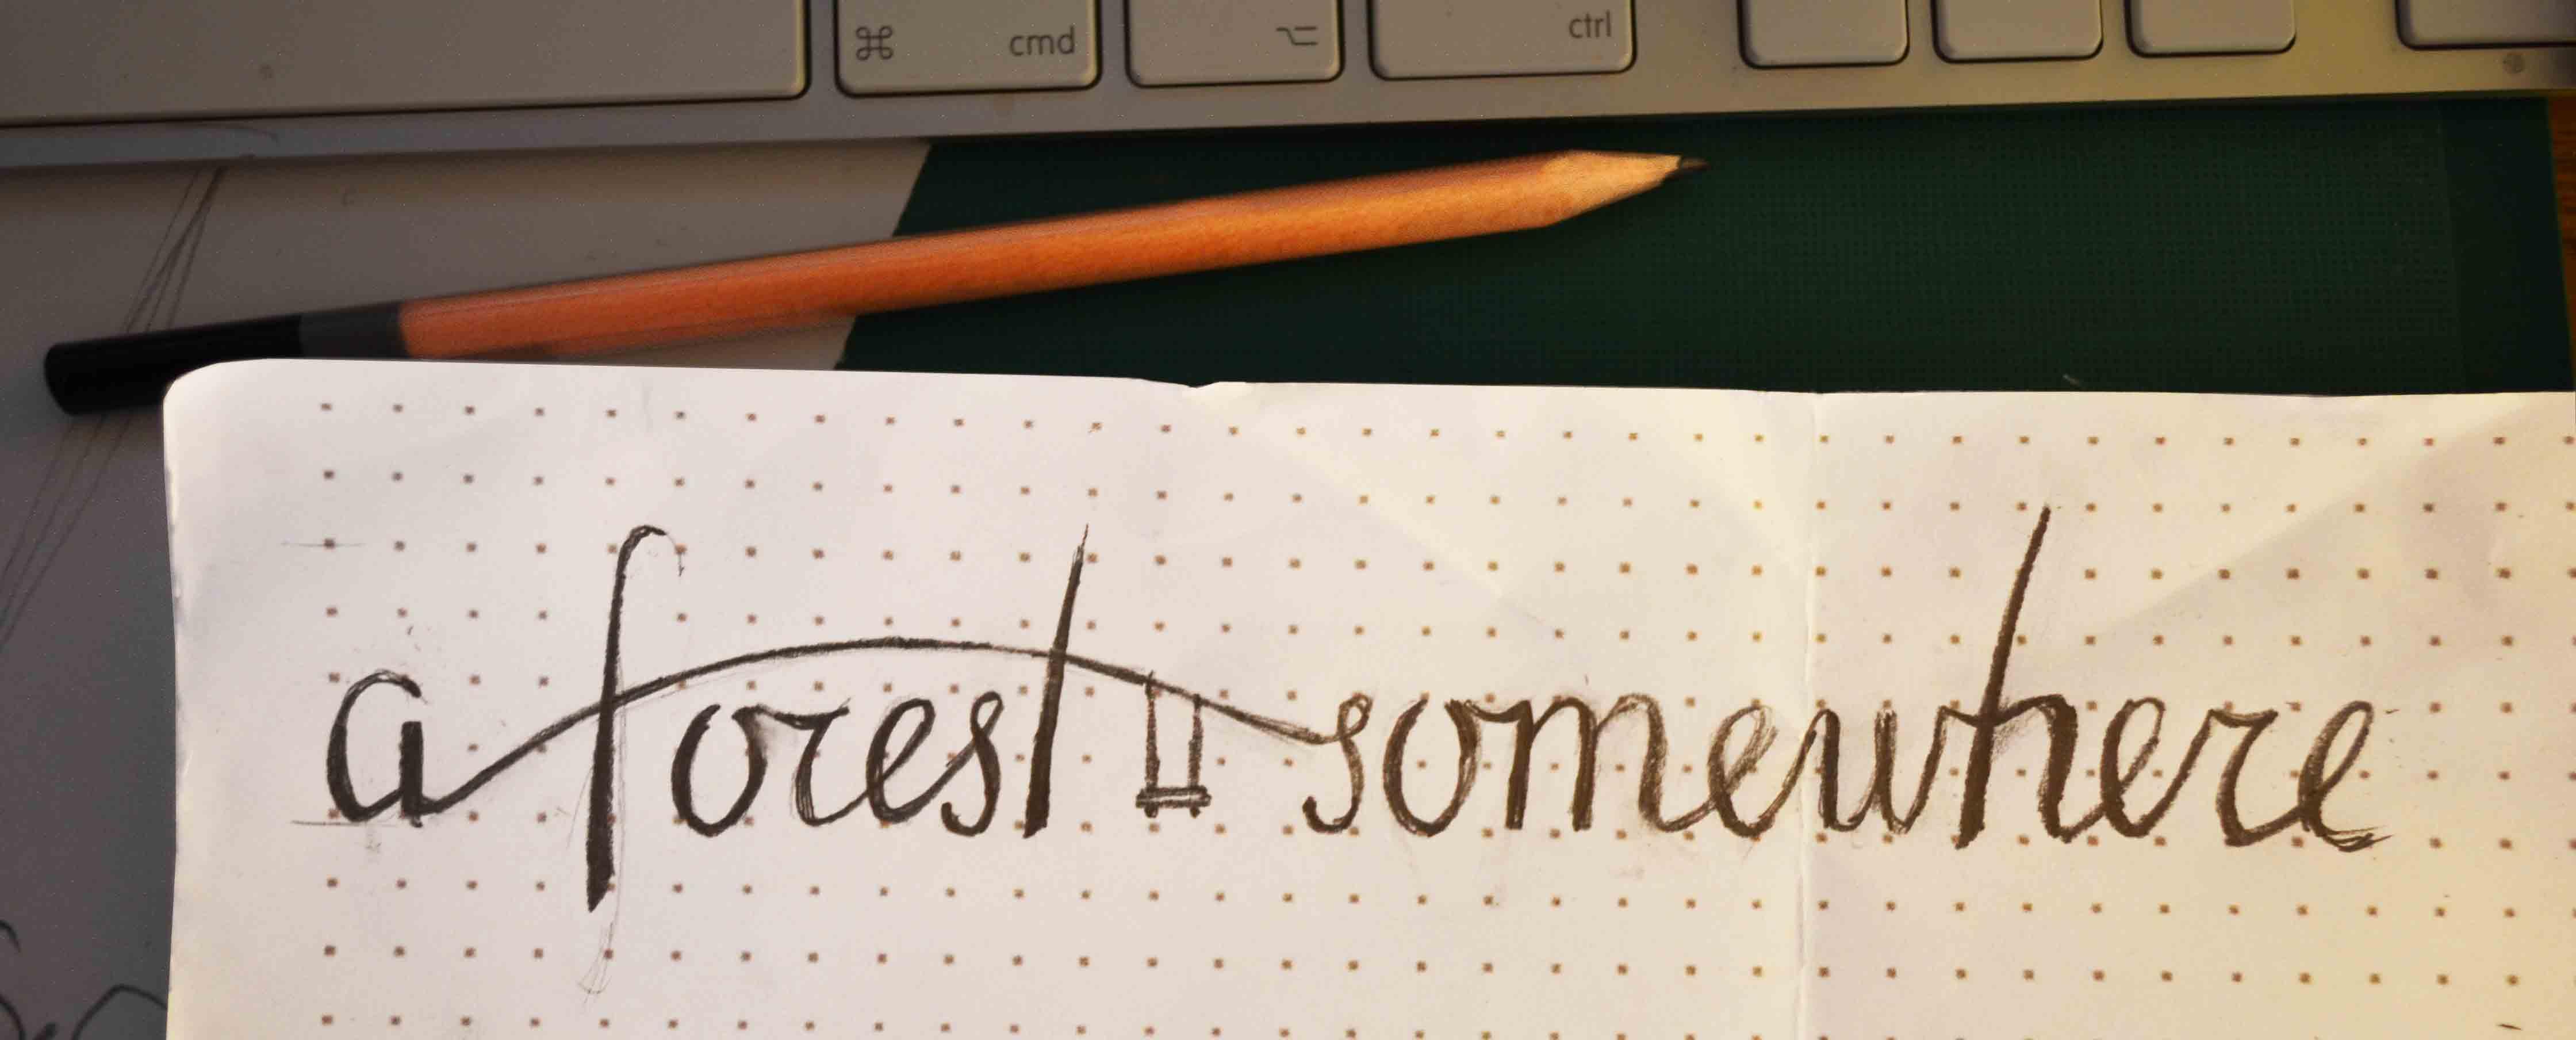 ⌘ cmd ⌥ ctrl
a forest somewhere